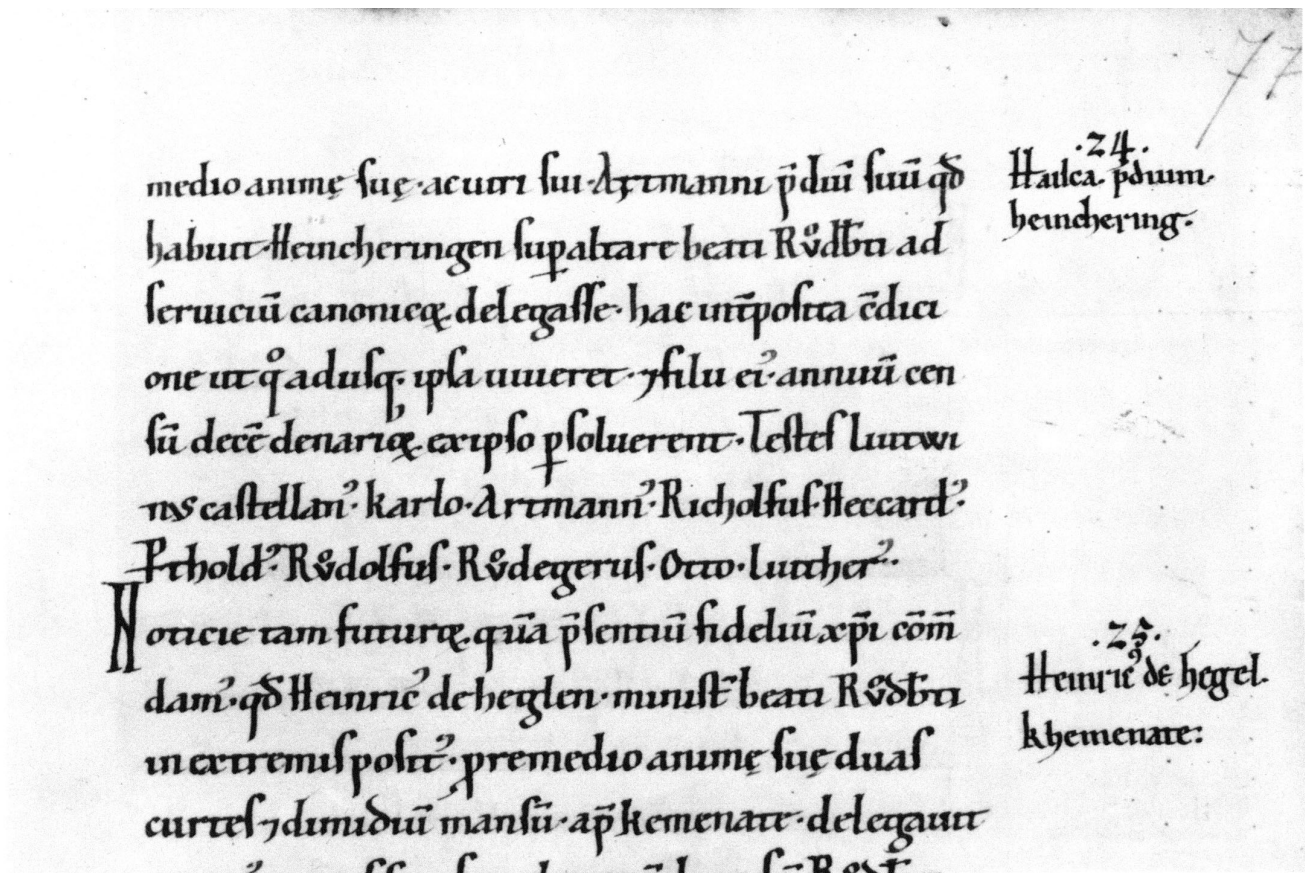 77
medio animę suę · ac uiri sui · Artmanni p̄diū suū qđ
habuit · Heincheringen sup altare beati Růdb̄ti ad
seruiciū canonicoꝝ delegasse · hac int̄posita c̄dici
one ut qͦ adusq; ipsa uiueret · ⁊ filii ei᾽ · annuū cen
sū decē denarioꝝ ex ipso ꝑsoluerent · Testes Liutwi
nus castellan᾽ · karlo · Artmann᾽ · Richolfus · Heccard᾽ ·
Pthold᾽ · Růdolfus · Růdegerus · Otto · Luither᾽ ·
Noticie tam futuroꝝ · quā p̄sentiū fideliū xp̄i cōm̄
dam᾽ · qđ Heinric᾽ de heglen · minist̄ beati Růdb̄ti
in extremis posit᾽ · p remedio animę suę duas
curtes ⁊ dimidiū mansū · ap̄ kemenate · delegauit
· 24 ·
Hailca · p̄dium ·
heinchering ·
· 25 ·
Heinric᾽ de hegel .
khemenate :